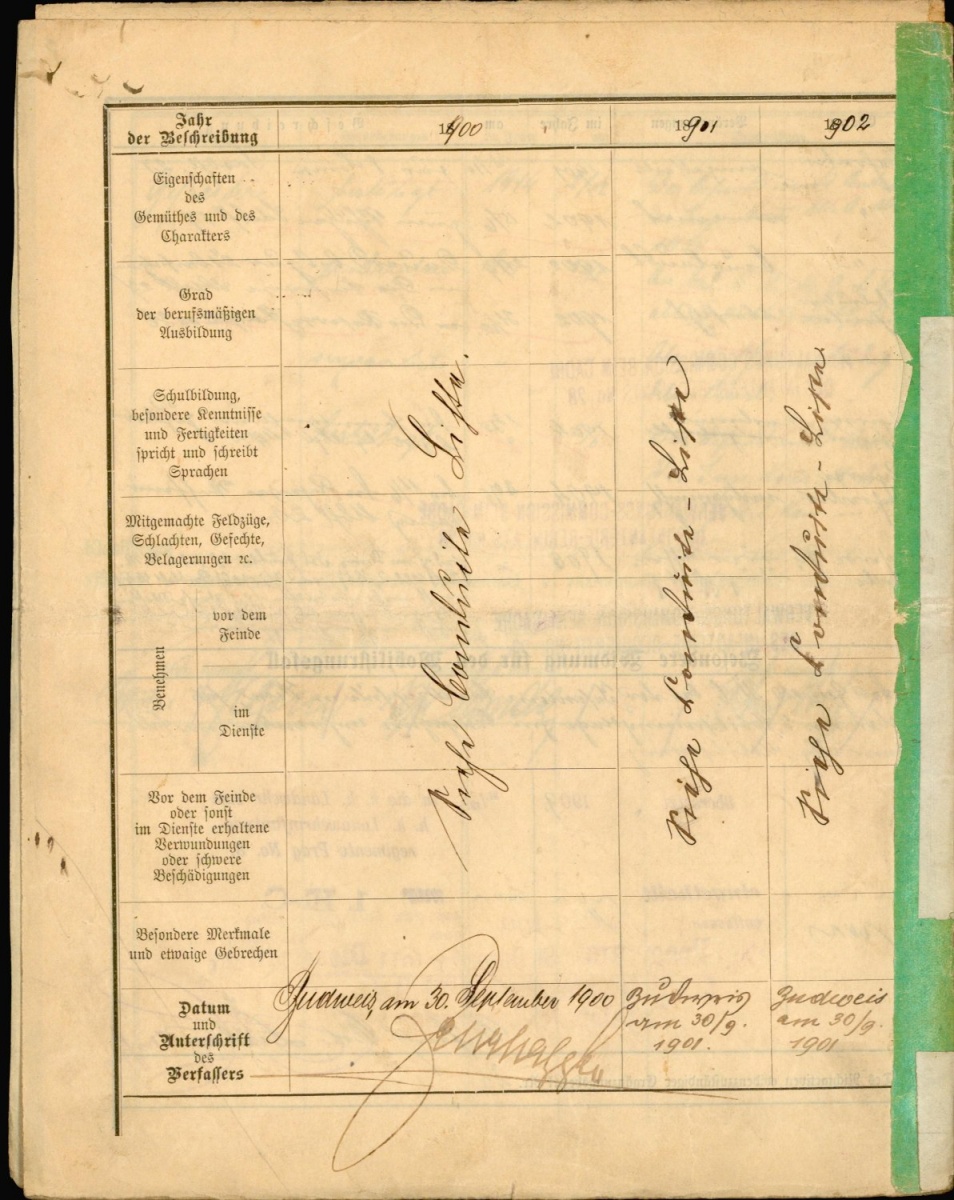 Jahr
der Beschreibung
1900
1901
1902
Eigenschaften
des
Gemüthes und des
Charakters
Grad
der berufsmäßigen
Ausbildung
Schulbildung,
besondere Kenntnisse
und Fertigkeiten
spricht und schreibt
Sprachen
Mitgemachte Feldzüge,
Schlachten, Gefechte,
Belagerungen ꝛc.
Benehmen
vor dem
Feinde
im
Dienste
Vor dem Feinde
oder sonst
im Dienste erhaltene
Verwundungen
oder schwere
Beschädigungen
Besondere Merkmale
und etwaige Gebrechen
Siehe Conduite Liste.
Siehe Conduite-Liste
Siehe Conduite-Liste
Datum
und
Unterschrift
des
Verfassers
Budweis, am 30. September 1900
Budweis
am 30/9.
1901.
Budweis
am 30/9.
1901